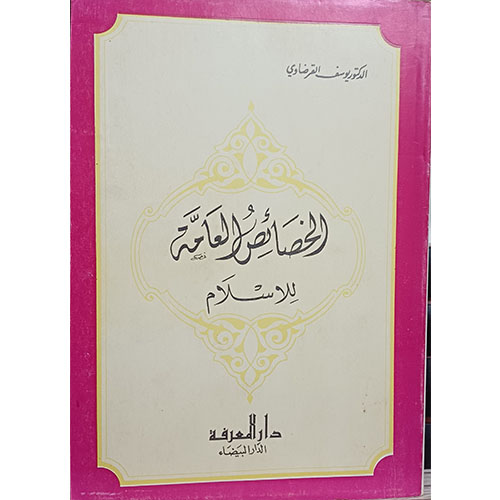 الدكتور يوسف القرضاوي
الخصائص العامة
للإسلام
دار المعرفة
الدار البيضاء